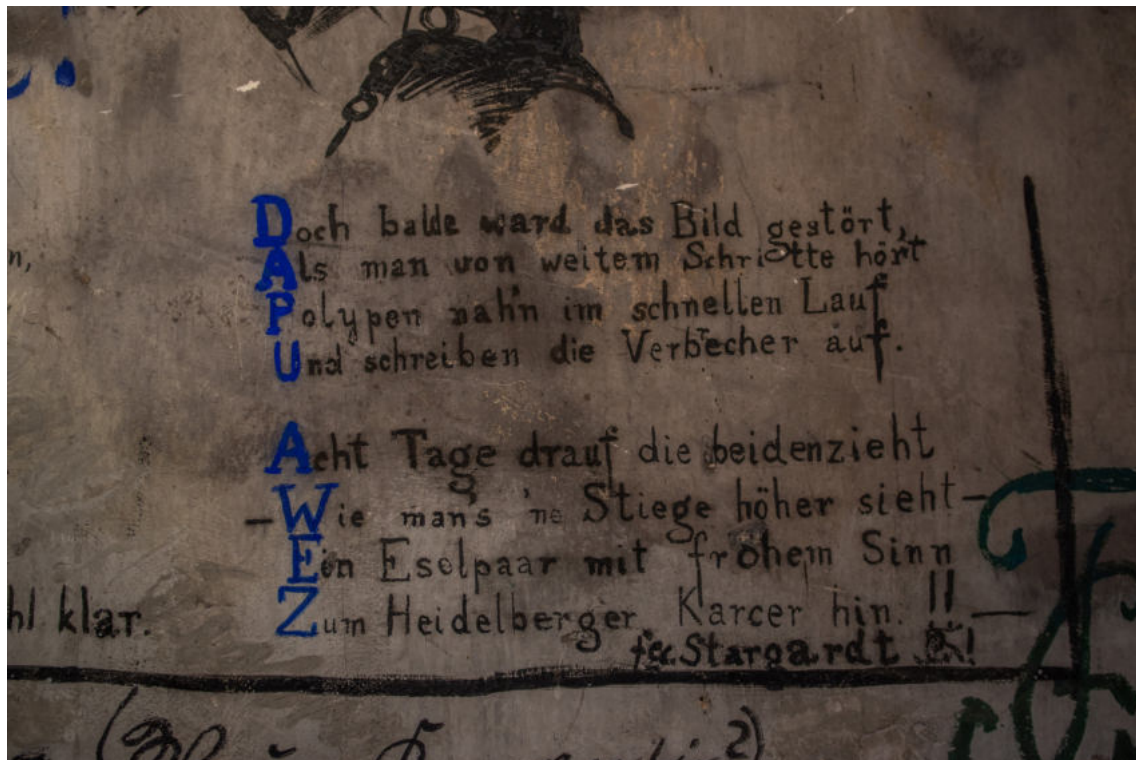 n,
Doch balde ward das Bild gestört,
Als man von weitem Schritte hört
Polypen nah'n im schnellen Lauf
Und schreiben die Verbrecher auf.
Acht Tage drauf die beidenzieht
– Wie man's 'ne Stiege höher sieht –
Ein Eselpaar mit frohem Sinn
hl klar.
Zum Heidelberger Karcer hin. !! —
fec. Stargardt